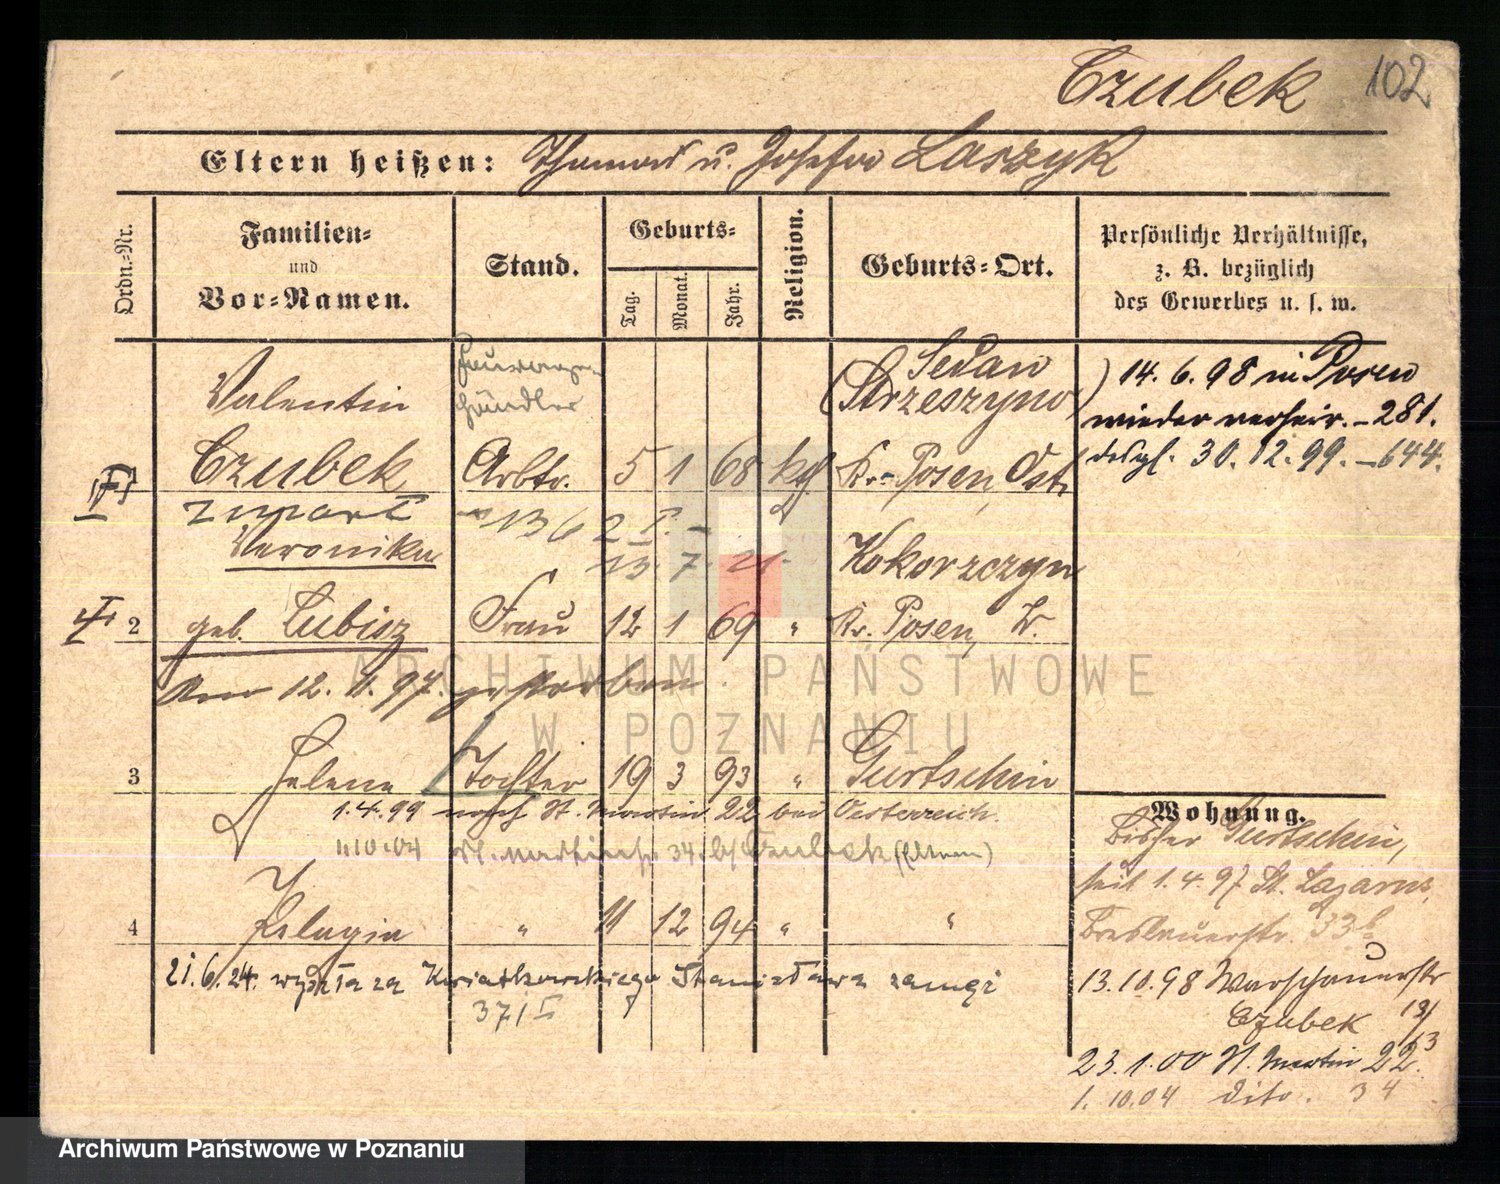 Czubek 102
Eltern heißen: Thomas u. Josefa Laszyk
Ordn.-Nr.
Familien-
und
Vor-Namen.
Stand.
Geburts-
Tag.
Monat.
Jahr.
Religion.
Geburts-Ort.
Persönliche Verhältnisse,
z. B. bezüglich
des Gewerbes u. s. w.
Valentin händler Sedan
(Strzeszyno) 14. 6. 98 in Posen
wieder verheir. - 281.
Czubek Arbtr. 5 1 68 kth. Kr. Posen Ost
desgl. 30. 12. 99. - 644.
zmarł 136 2 I. -
Veronika 13. 7. 21. Kokorzczyn
2 geb. Lubisz Frau 12 1 69 " Kr. Posen W.
Am 12. 11. 97 gestorben
3 Helene Tochter 19 3 93 " Gurtschin
1.4.99 nach St. Martin 22 bei Oesterreich.
1.10.04 St. Martinstr. 34. b/ Czubek (Eltern)
4 Pelagia " 11 12 94 " "
21.6.24. wyszła za Kwiatkowskiego Stanisława zamęż
37/I
Wohnung.
Bisher Gurtschin,
seit 1.4.97 St. Lazarus,
Breslauerstr. 33b
13.10.98 Warschauerstr
Czubek 13/
13
23.1.00 St. Martin 22.
1.10.04 dito. 34
ARCHIWUM PAŃSTWOWE
W POZNANIU
Archiwum Państwowe w Poznaniu